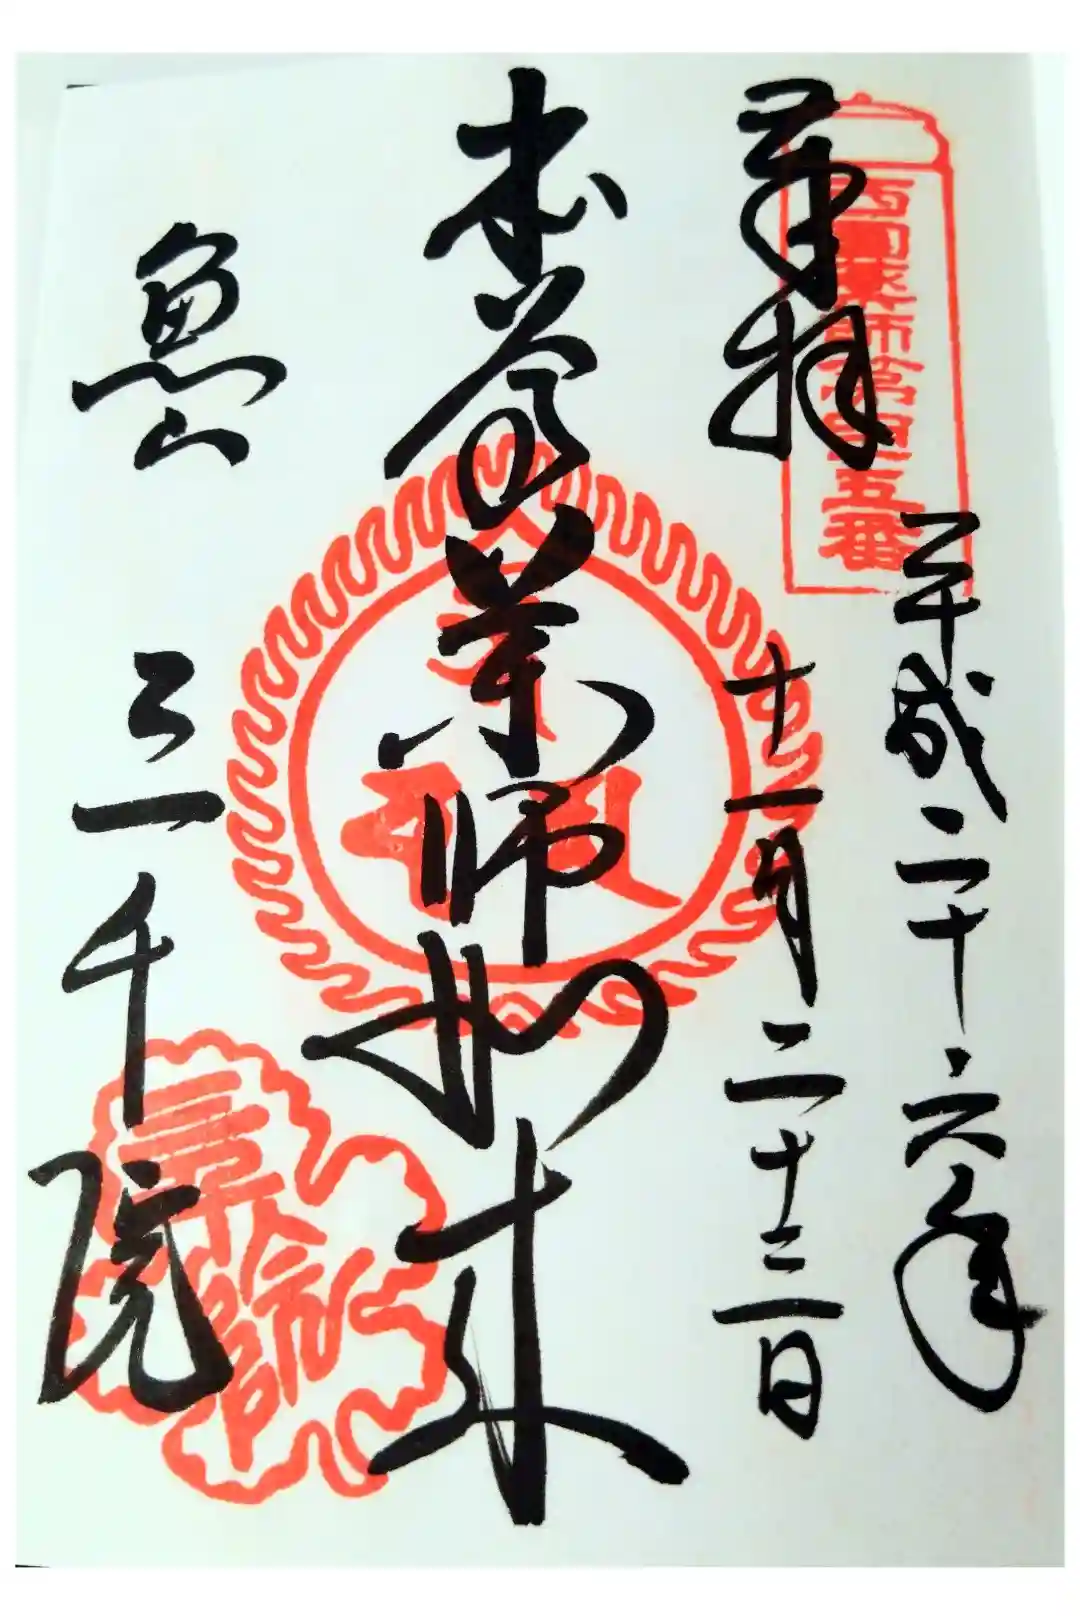 西国薬師第四五番
奉拝
平成二十六年
十一月二十三日
本尊薬師如来
魚山
三千院